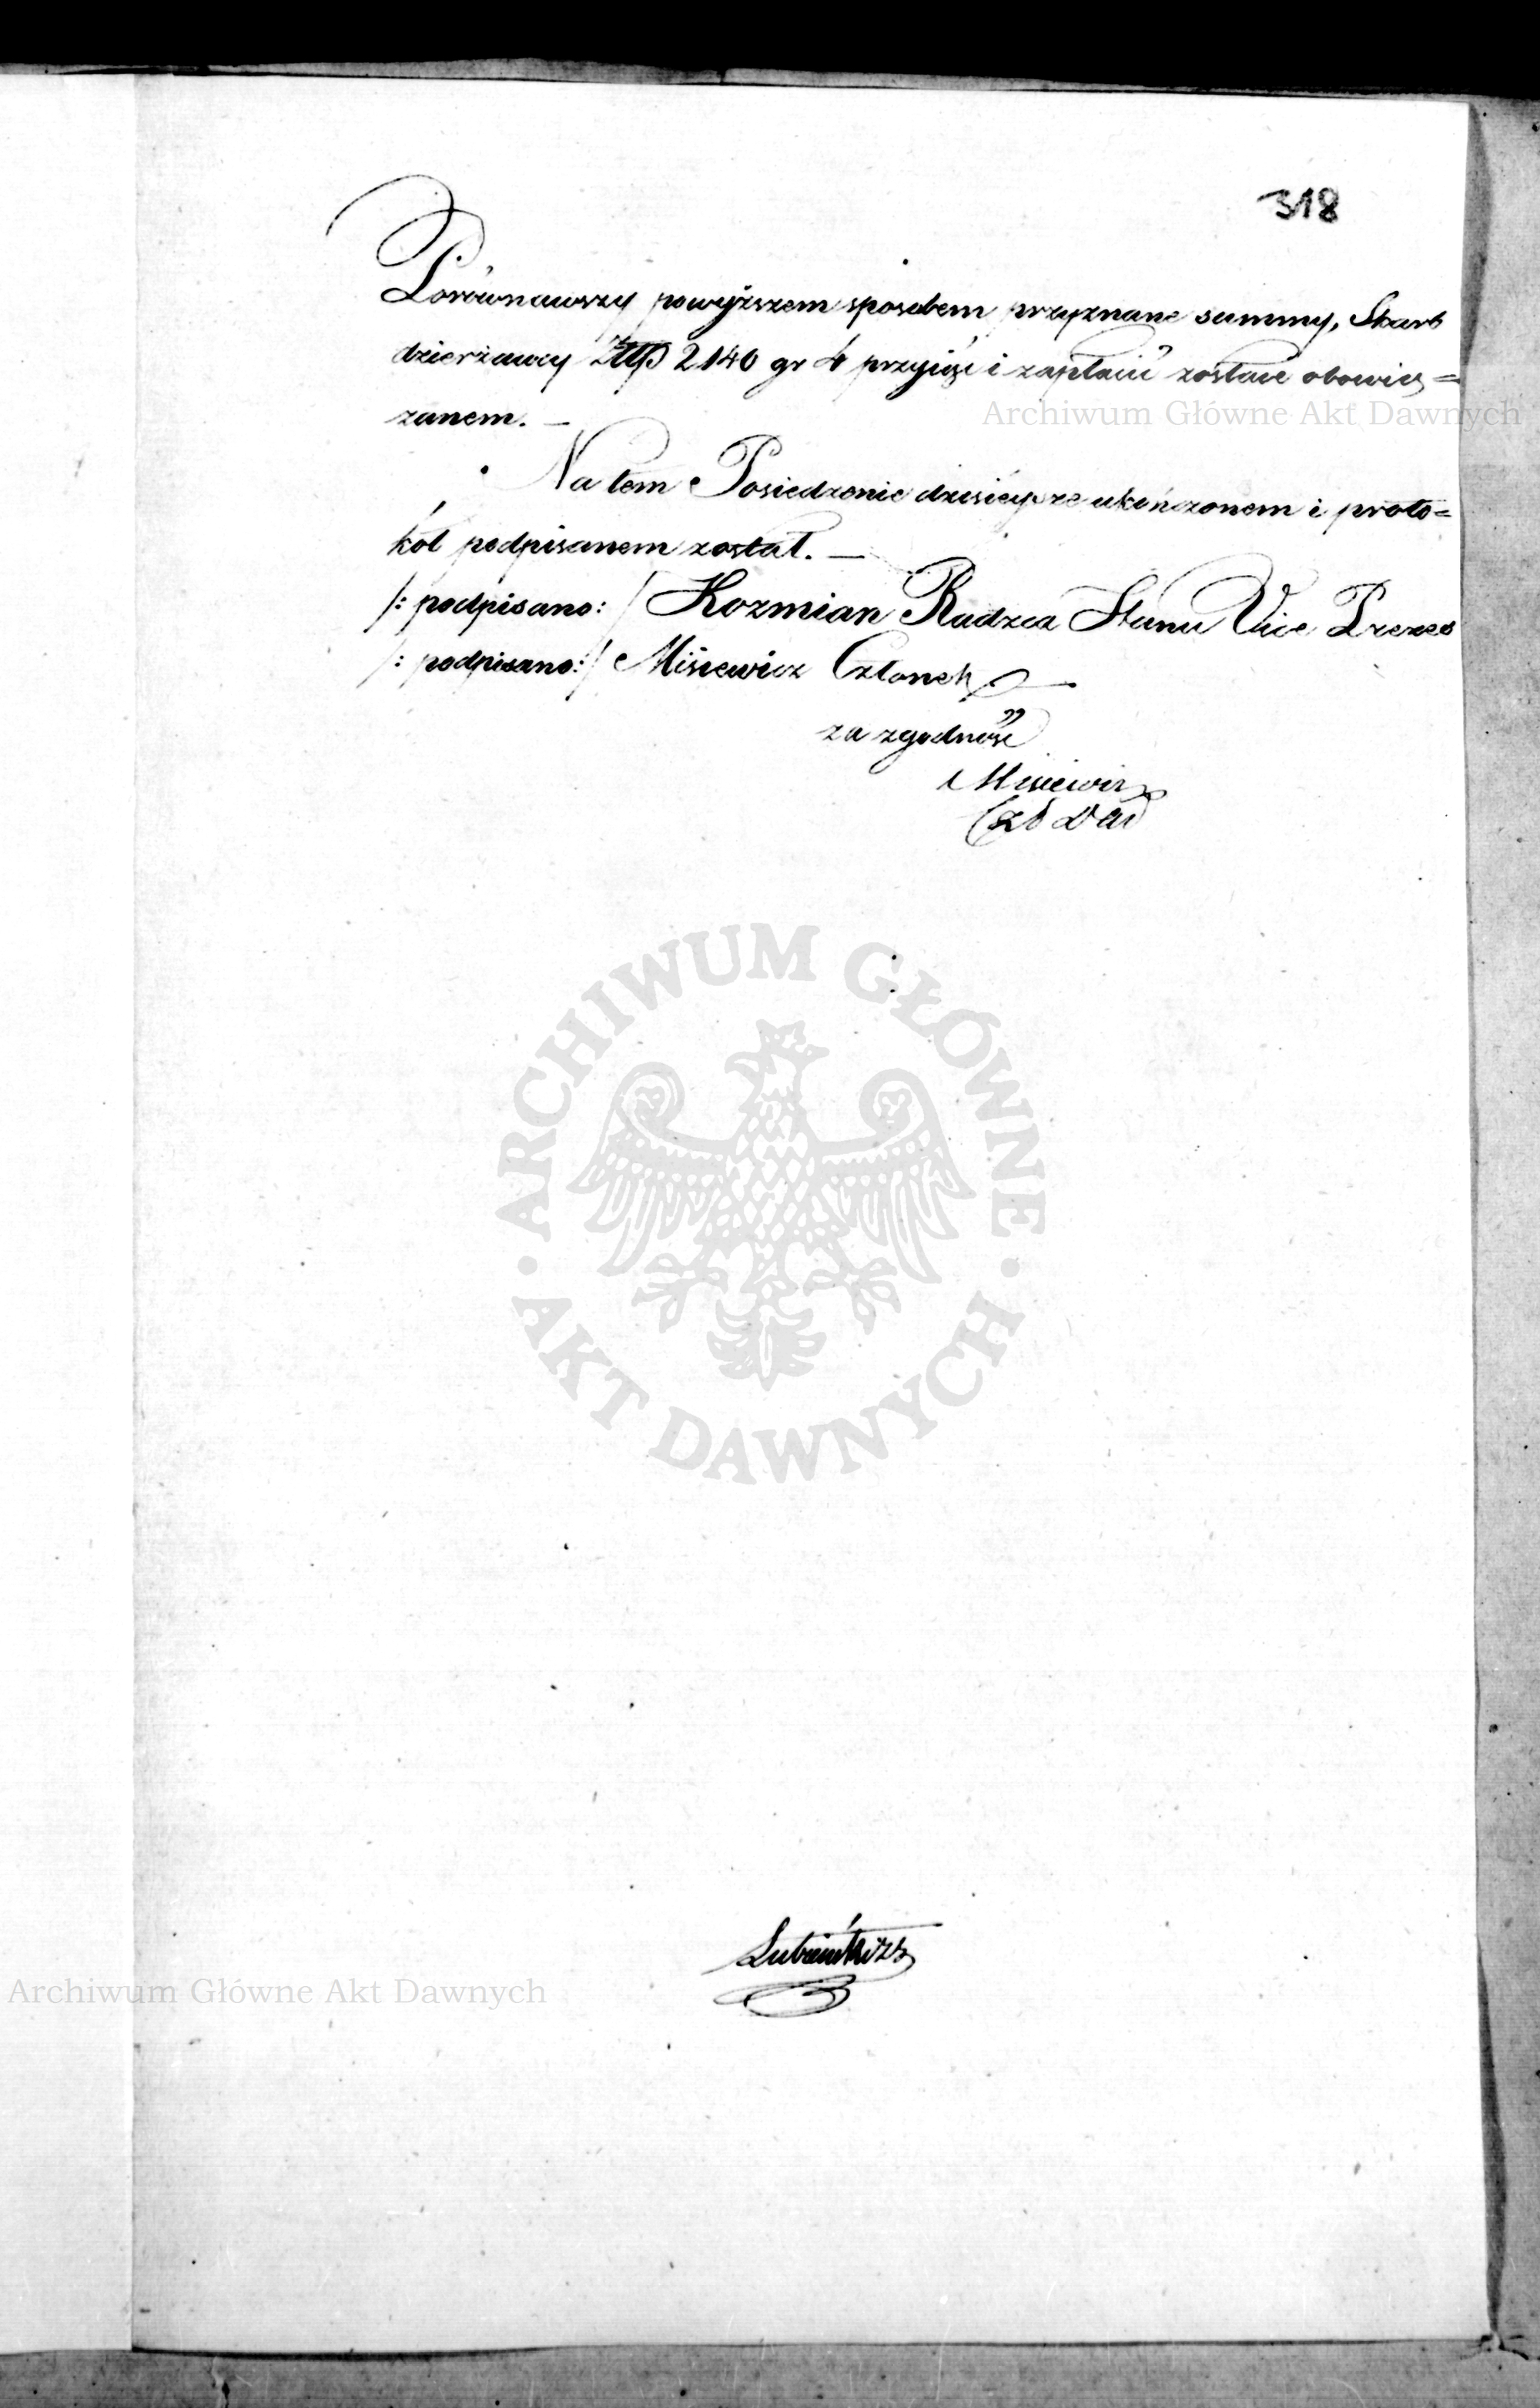 318
Porównawszy powyższem sposobem przyznane summy, Skarb
dzierżawcy Złtp 2140 gr 4 przyiąć i zapłacić zostaie obowią=
Archiwum Główne Akt Dawnych
zanem. —
Na tem Posiedzenie dzisieysze ukończonem i proto=
kół podpisanem został. —
/: podpisano: / Kozmian Radzca Stanu Vice Prezes
/: podpisano: / Misiewicz Członek
za zgodność
Misiewicz
ARCHIWUM GŁÓWNE
· AKT DAWNYCH ·
Archiwum Główne Akt Dawnych